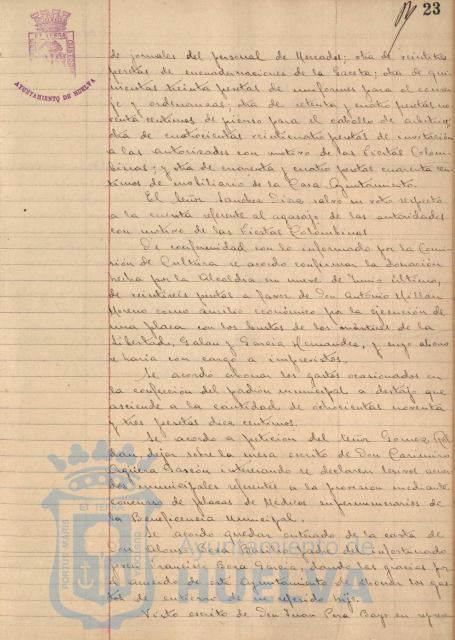 23
AYUNTAMIENTO DE HUELVA
de jornales del personal de Mercados; otra de veintitres
pesetas de encuadernaciones de la Gaceta; otra de qui-
nientas treinta pesetas de uniformes para el conser-
je y ordenanzas; otra de setenta y cuatro pesetas no-
venta centimos de pienso para el caballo de arbitrios;
otra de cuatrocientas veinticuatro pesetas de invitación
a las autoridades con motivo de las Fiestas Colom-
binas; y otra de cuarenta y cuatro pesetas cuarenta cen-
timos de mobiliario de la Casa Ayuntamiento.
El Señor Sanchez Diaz, salvó su voto respecto
a la cuenta referente al agasajo de las autoridades
con motivo de las Fiestas Colombinas
De conformidad con lo informado por la Comi-
sión de Cultura se acordó confirmar la donación
hecha por la Alcaldia en nueve de Junio último,
de pesetas a favor de Don Antonio Millan
Moreno como auxilio económico por la ejecución de
una placa con los bustos de los mártires de la
Libertad, Galan y Garcia Hernandez, y cuyo abono
se haria con cargo a imprevistos.
Se acordó abonar los gastos ocasionados en
la confección del padrón municipal a destajo que
asciende a la cantidad de ochocientas noventa
y tres pesetas diez centimos.
Se acordó a petición del Señor Gomez Rol-
dan, dejar sobre la mesa escrito de Don Casimiro
Aguera Garzón interesando se declaren lesivos acuer-
dos municipales referentes a la provision mediante
concurso de plazas de Medicos supernumerarios de
la Beneficencia Municipal.
Se acordó quedar enterado de la carta de
Don Alonso padre del infortunado
joven Francisco Boza Garcia, dando las gracias por
el acuerdo de este Ayuntamiento de abonar los gas-
tos de entierro de su referido hijo.
Visto escrito de Don Juan en
Ayuntamiento de
HUELVA